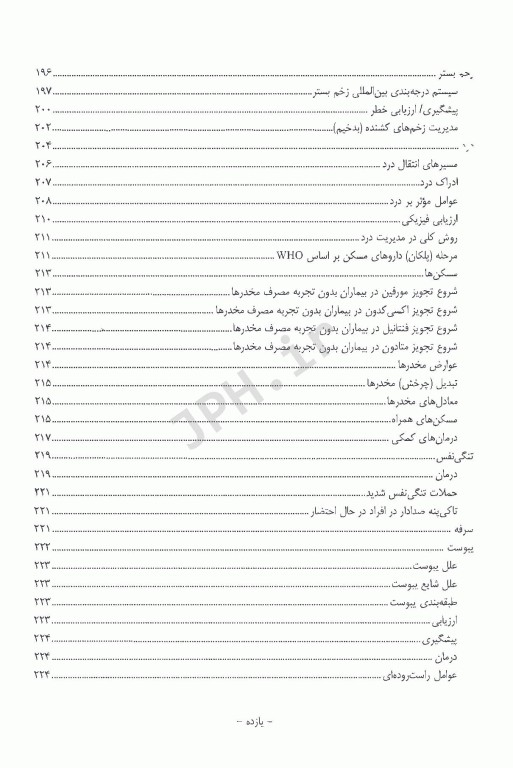 زخم بستر ۱۹۶
سیستم درجه‌بندی بین‌المللی زخم بستر ۱۹۷
پیشگیری/ ارزیابی خطر ۲۰۰
مدیریت زخم‌های کشنده (بدخیم) ۲۰۲
۲۰۴
مسیرهای انتقال درد ۲۰۶
ادراک درد ۲۰۷
عوامل مؤثر بر درد ۲۰۸
ارزیابی فیزیکی ۲۱۰
روش کلی در مدیریت درد ۲۱۱
مرحله (پلکان) داروهای مسکن بر اساس WHO ۲۱۱
مسکن‌ها ۲۱۳
شروع تجویز مورفین در بیماران بدون تجربه مصرف مخدرها ۲۱۳
شروع تجویز اکسی‌کدون در بیماران بدون تجربه مصرف مخدرها ۲۱۳
شروع تجویز فنتانیل در بیماران بدون تجربه مصرف مخدرها ۲۱۴
شروع تجویز متادون در بیماران بدون تجربه مصرف مخدرها ۲۱۴
عوارض مخدرها ۲۱۴
تبدیل (چرخش) مخدرها ۲۱۵
معادل‌های مخدرها ۲۱۵
مسکن‌های همراه ۲۱۵
درمان‌های کمکی ۲۱۷
تنگی‌نفس ۲۱۹
درمان ۲۱۹
حملات تنگی‌نفس شدید ۲۲۱
تاکی‌پنه صدادار در افراد در حال احتضار ۲۲۱
سرفه ۲۲۱
یبوست ۲۲۲
علل یبوست ۲۲۳
علل شایع یبوست ۲۲۳
طبقه‌بندی یبوست ۲۲۳
ارزیابی ۲۲۳
پیشگیری ۲۲۴
درمان ۲۲۴
عوامل راست‌روده‌ای ۲۲۴
- یازده -
JPH.ir